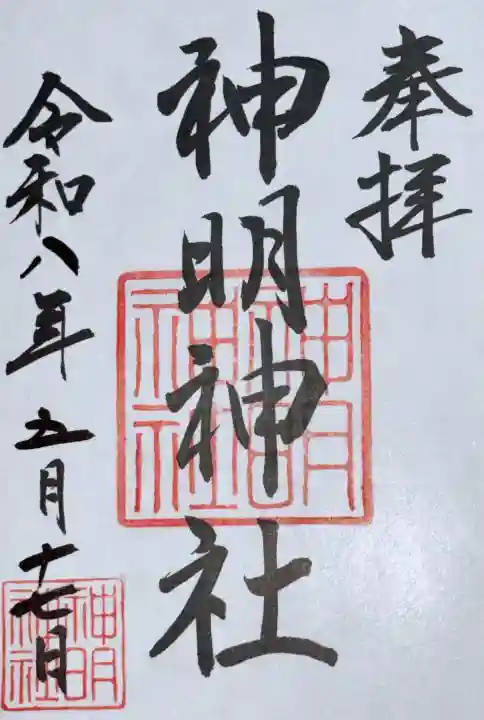 奉拝
神明神社
令和八年五月十七日
神明神社
神明神社